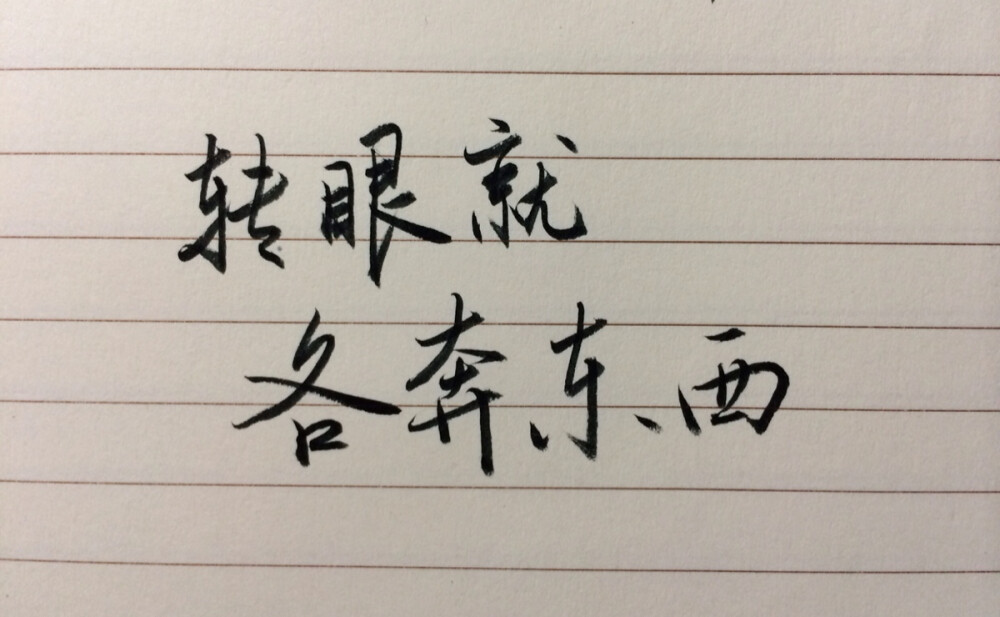 转眼就
各奔东西